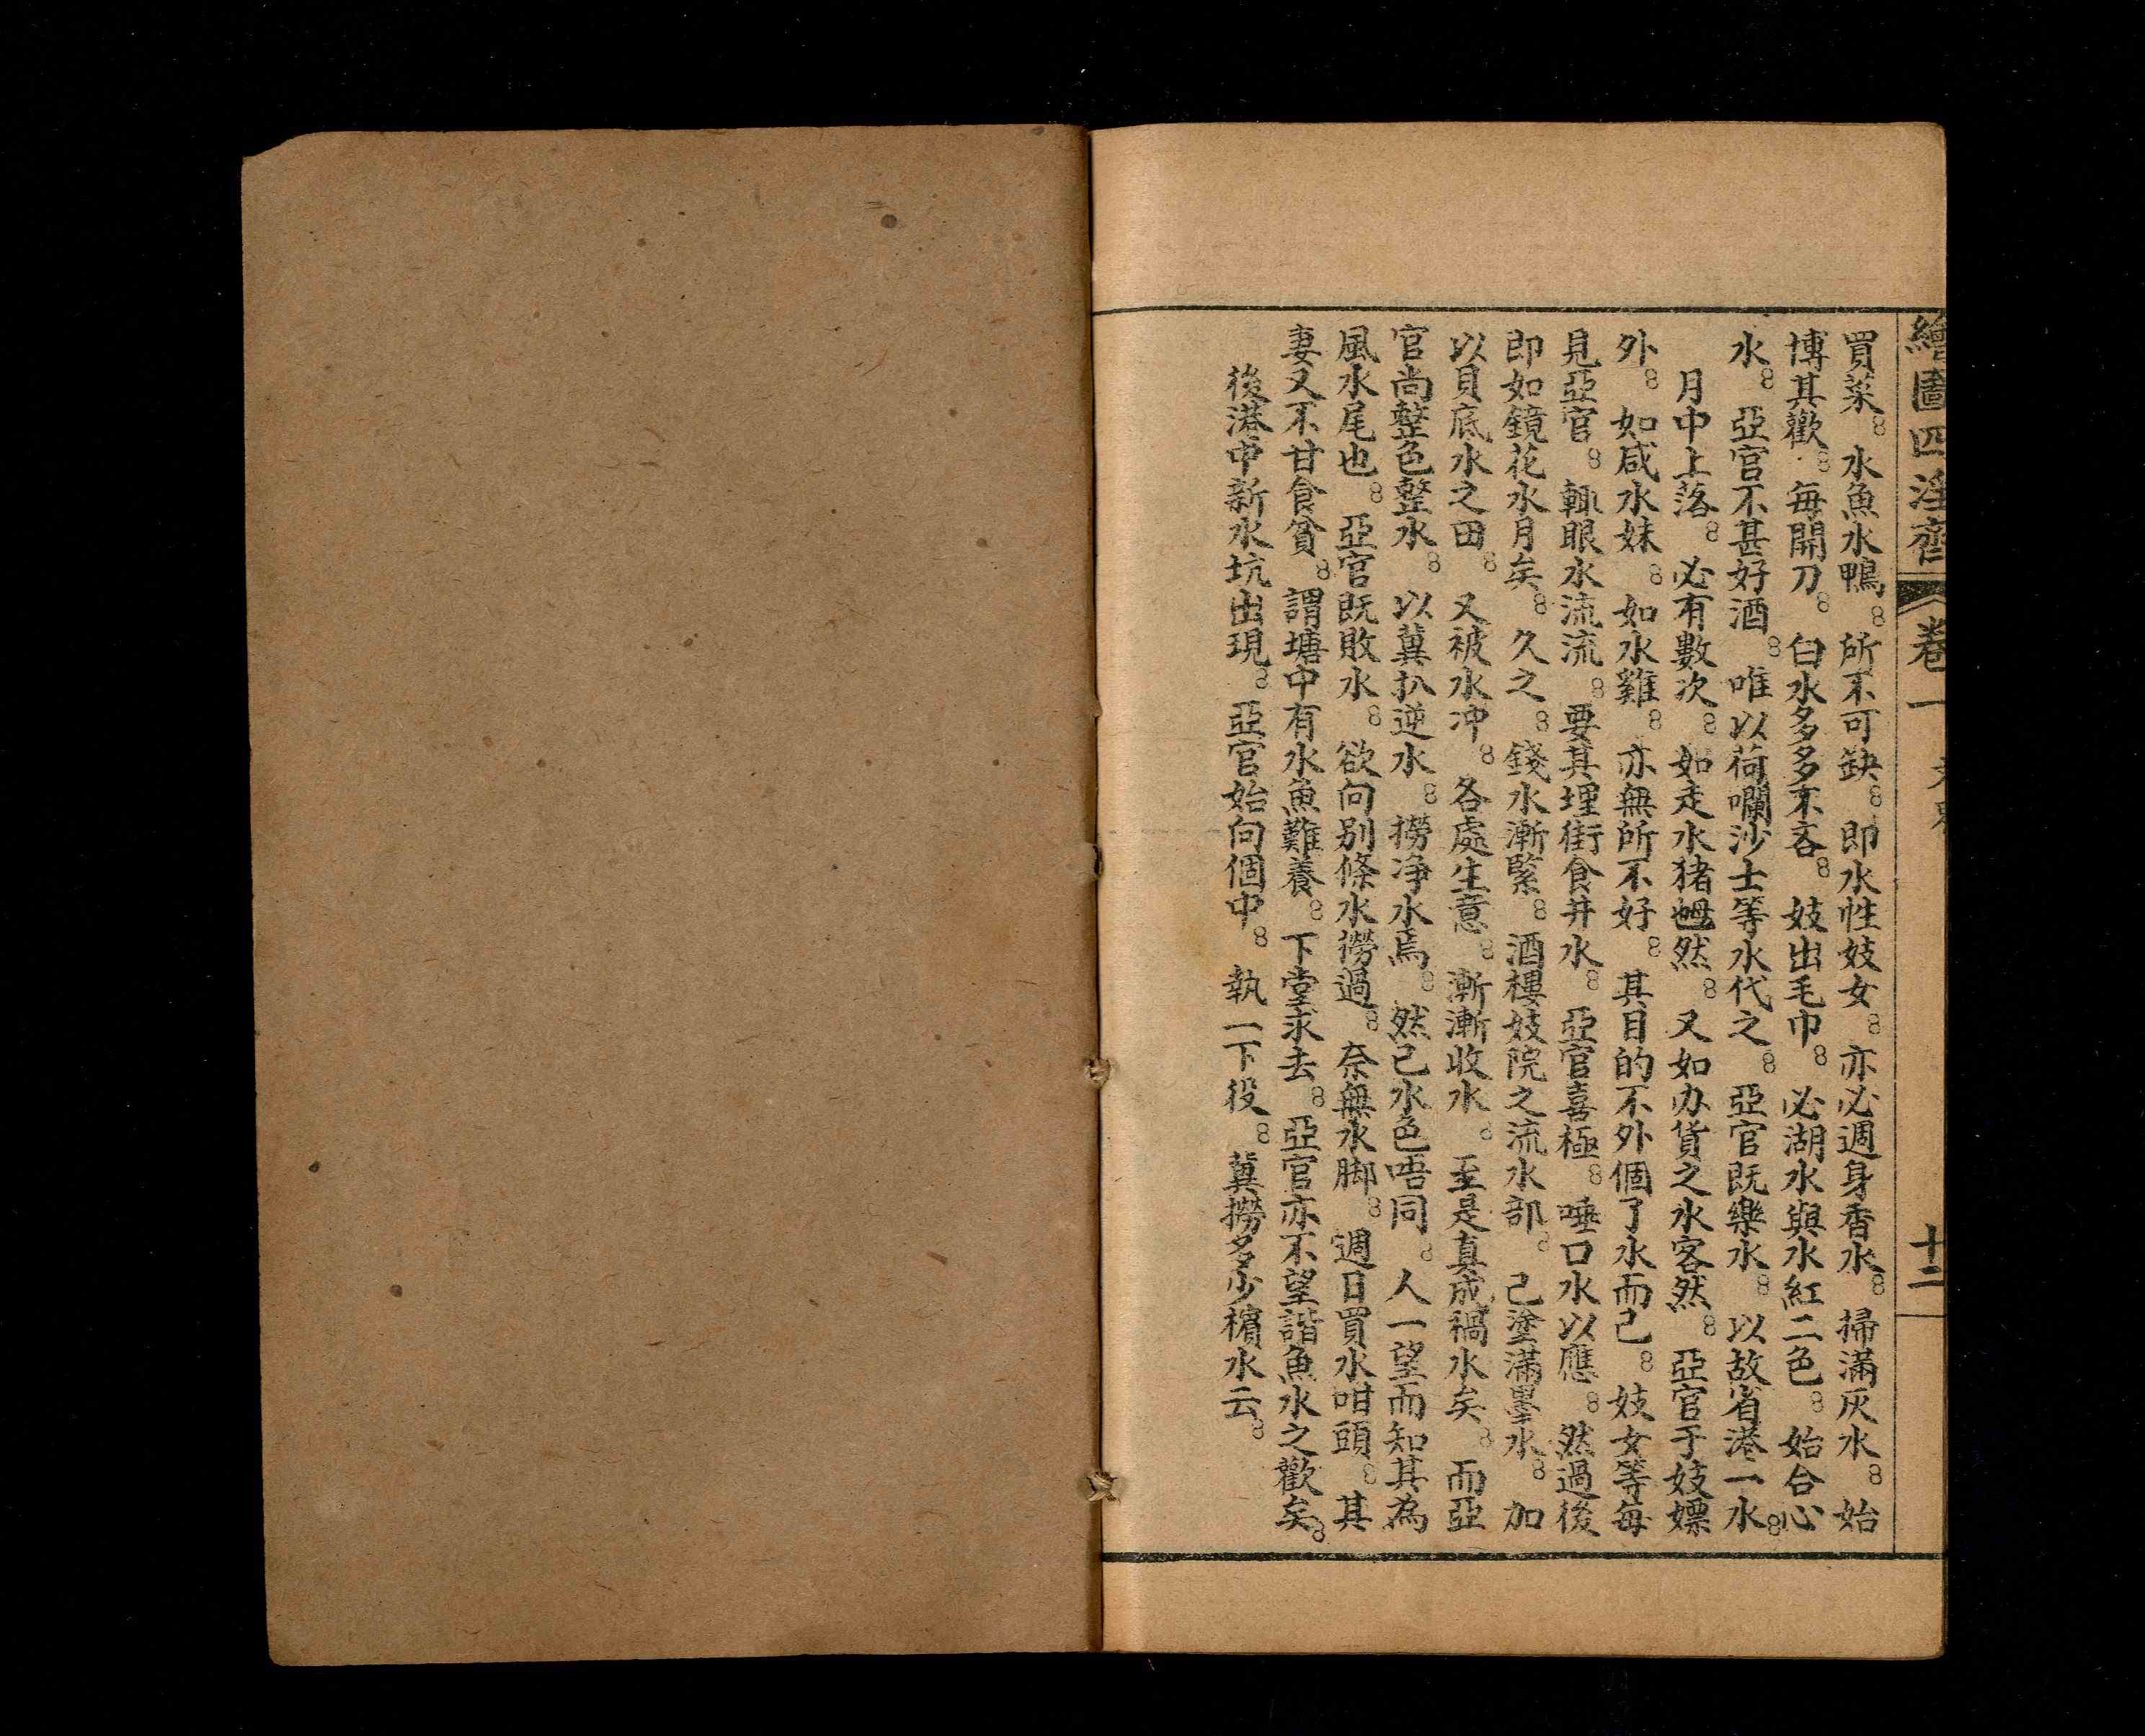 繪圖四淫齋 卷一 十二
買菜。水魚水鴨。所不可缺。即水性妓女。亦必週身香水。掃滿灰水。始
博其歡。每開刀。白水多多不吝。妓出毛巾。必湖水與水紅二色。始合心
水。亞官不甚好酒。唯以荷囒沙士等水代之。亞官既樂水。以故省港一水。
月中上落。必有數次。如走水猪乸然。又如办貨之水客然。亞官于妓嫖
外。如咸水妹。如水雞。亦無所不好。其目的不外個了水而已。妓女等每
見亞官。輙眼水流流。要其埋街食井水。亞官喜極。唾口水以應。然過後
即如鏡花水月矣。久之。錢水漸緊。酒樓妓院之流水部。已塗滿墨水。加
以貝底水之田。又被水冲。各處生意。漸漸收水。至是真成禍水矣。而亞
官尚整色整水。以糞扒逆水。撈净水焉。然已水色唔同。人一望而知其為
風水尾也。亞官既敗水。欲向别條水撈過。奈無水脚。週日買水咁頭。其
妻又不甘食貧。謂塘中有水魚難養。下堂求去。亞官亦不望諧魚水之歡矣。
後港中新水坑出現。亞官始向個中。執一下役。冀撈多少檳水云。